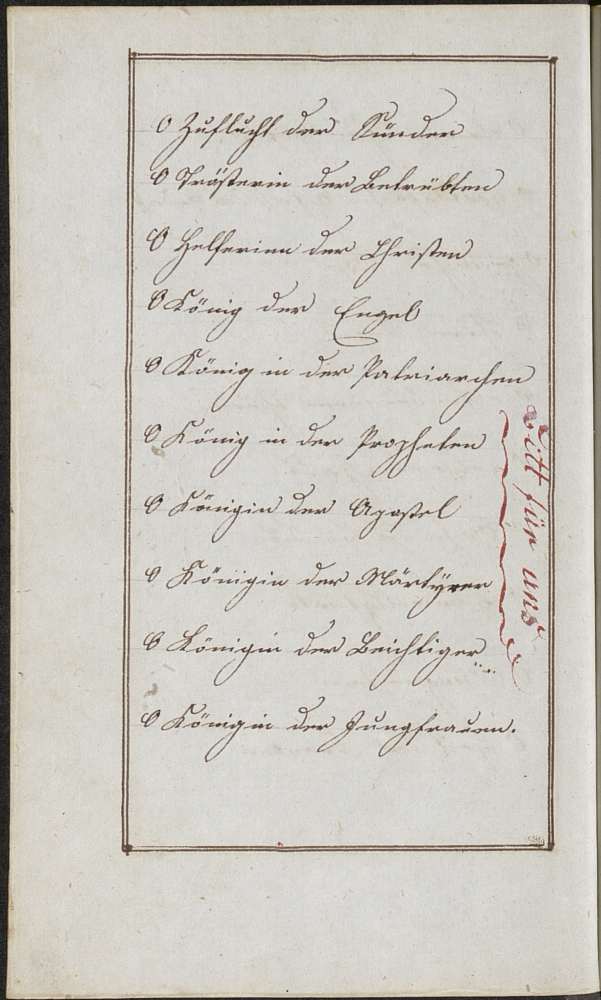 O Zuflucht der Sünder
O Trösterin der Betrübten
O Helferinn der Christen
O König der Engel
O König in der Patriarchen
O König in der Propheten
O Königin der Apostel
O Königin der Märtyrer
O Königin der Beichtiger
O Königin der Jungfrauen.
Bitt für uns